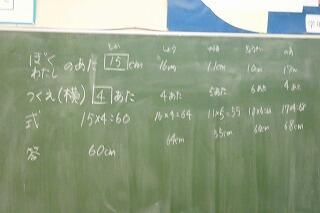 ぼく
わたし のあた 15cm 16cm 11cm 10cm 17cm
つくえ(横) 4あた 4あた 5あた 6あた 4あた
式 15×4=60 16×4=64 11×5=55 10×6=60 17×4=68
答 60cm 64cm 55cm 60cm 68cm